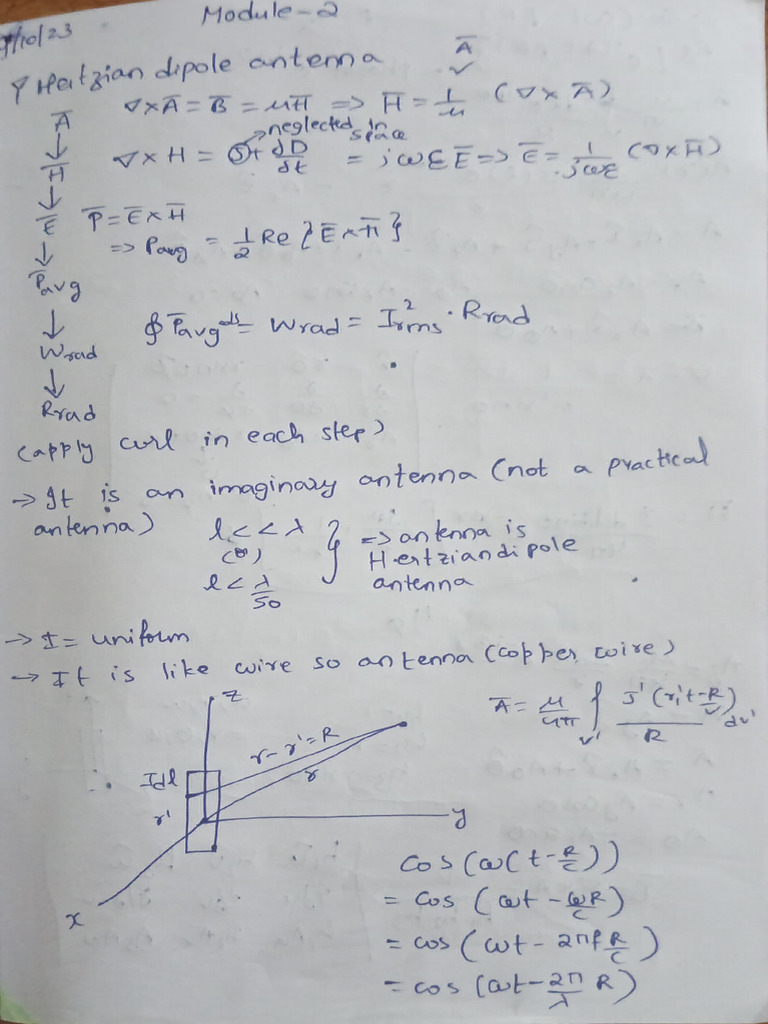 Module-2
/10/23
Hertzian dipole antenna
A̅
∇×A̅ = B̅ = μH̅ => H̅ = 1/μ (∇×A̅)
neglected in space
∇×H = J + dD/dt = jωε E̅ => E̅ = 1/jωε (∇×H̅)
A̅
↓
H̅
↓
E̅
↓
P̅avg
↓
Wrad
↓
Rrad
P̅ = E̅×H̅
=> Pavg = 1/2 Re {E̅×H̅}
∮ P̅avg ds = Wrad = I²rms · Rrad
(apply curl in each step)
→ It is an imaginary antenna (not a practical
antenna)
l << λ
(or)
l < λ/50
} => antenna is
Hertzian dipole
antenna
→ I = uniform
→ It is like wire so antenna (copper wire)
A̅ = μ/4π ∫v' J'(r',t-R/v)/R dv'
z
r-r'=R
r
Idl
r'
y
x
cos(ω(t-R/c))
= cos (ωt - ωR/c)
= cos (ωt - 2πf R/c)
= cos (ωt - 2π/λ R)